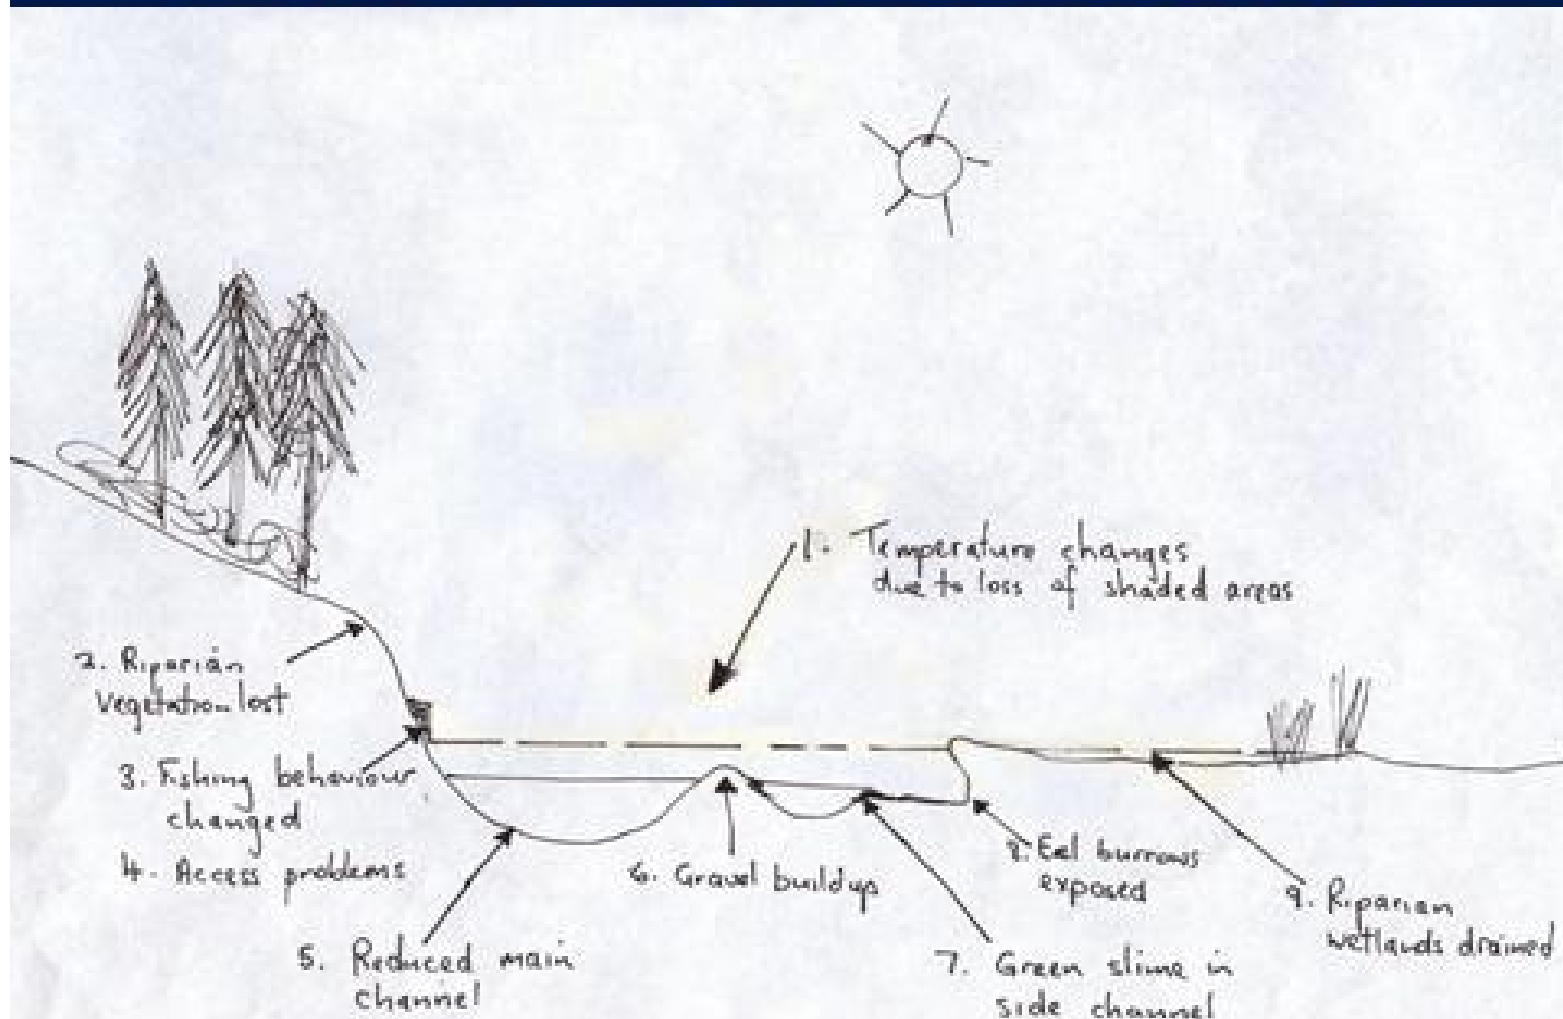 1. Temperature changes
due to loss of shaded areas
2. Riparian
vegetation lost
3. Fishing behaviour
changed
4. Access problems
5. Reduced main
channel
6. Gravel buildup
7. Green slime in
side channel
8. Eel burrows
exposed
9. Riparian
wetlands drained